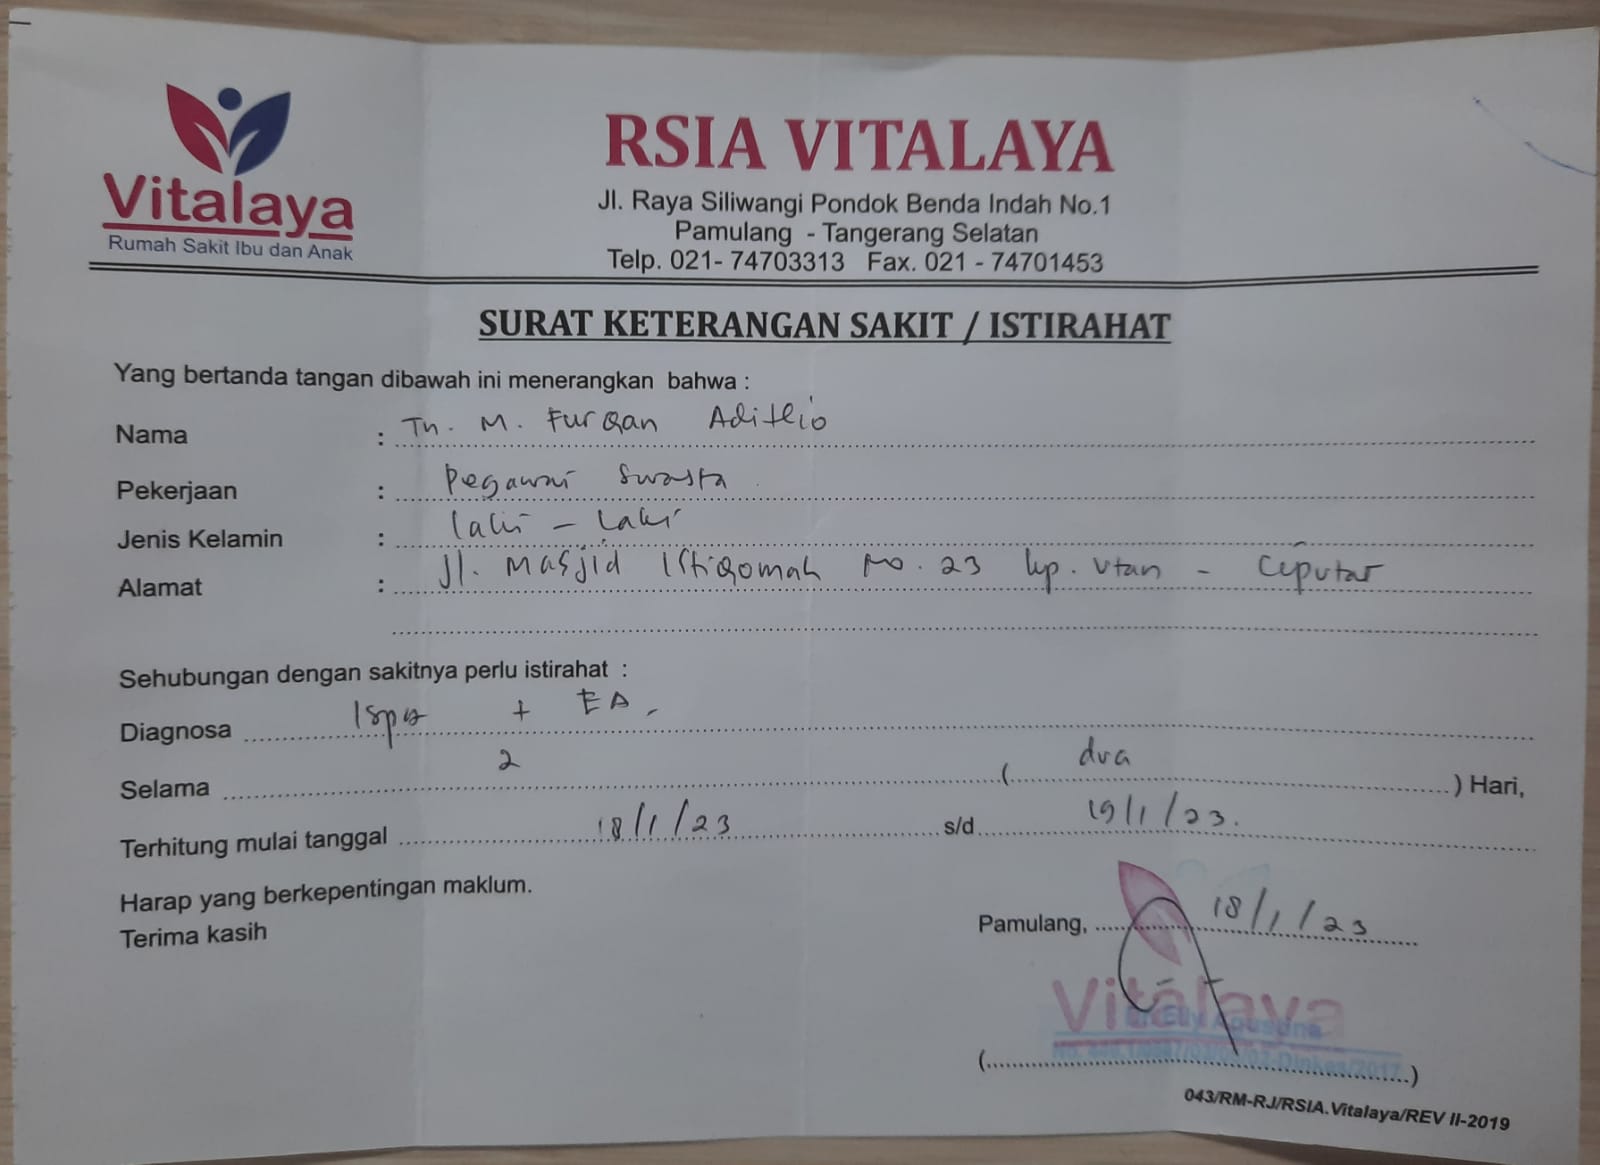 Vitalaya
Rumah Sakit Ibu dan Anak
RSIA VITALAYA
Jl. Raya Siliwangi Pondok Benda Indah No.1
Pamulang - Tangerang Selatan
Telp. 021- 74703313 Fax. 021 - 74701453
SURAT KETERANGAN SAKIT / ISTIRAHAT
Yang bertanda tangan dibawah ini menerangkan bahwa :
Nama : Tn. M. Furqan Adithio
Pekerjaan : Pegawai Swasta
Jenis Kelamin : laki - laki
Alamat : Jl. Masjid Istiqomah No. 23 kp. Utan - Ciputat
Sehubungan dengan sakitnya perlu istirahat :
Diagnosa Ispa + EA
Selama 2 ( dua ) Hari,
Terhitung mulai tanggal 18/1/23 s/d 19/1/23.
Harap yang berkepentingan maklum.
Terima kasih
Pamulang, 18/1/23
Vitalaya
(....................)
043/RM-RJ/RSIA.Vitalaya/REV II-2019